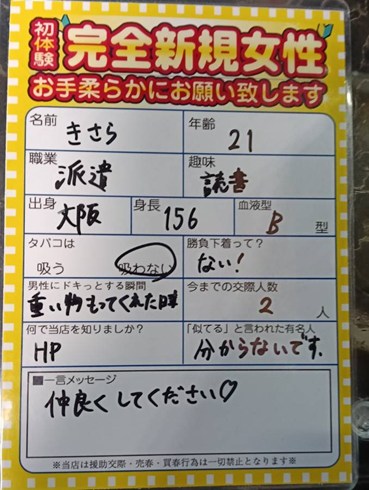 初体験 完全新規女性
お手柔らかにお願い致します
名前 きさら 年齢 21
職業 派遣 趣味 読書
出身 大阪 身長 156 血液型 B 型
タバコは 吸う 吸わない 勝負下着って? ない!
男性にドキっとする瞬間 重い物もってくれた時 今までの交際人数 2 人
何で当店を知りましたか? HP 「似てる」と言われた有名人 分からないです.
■一言メッセージ
仲良くしてください♡
※当店は援助交際・売春・買春行為は一切禁止となります※